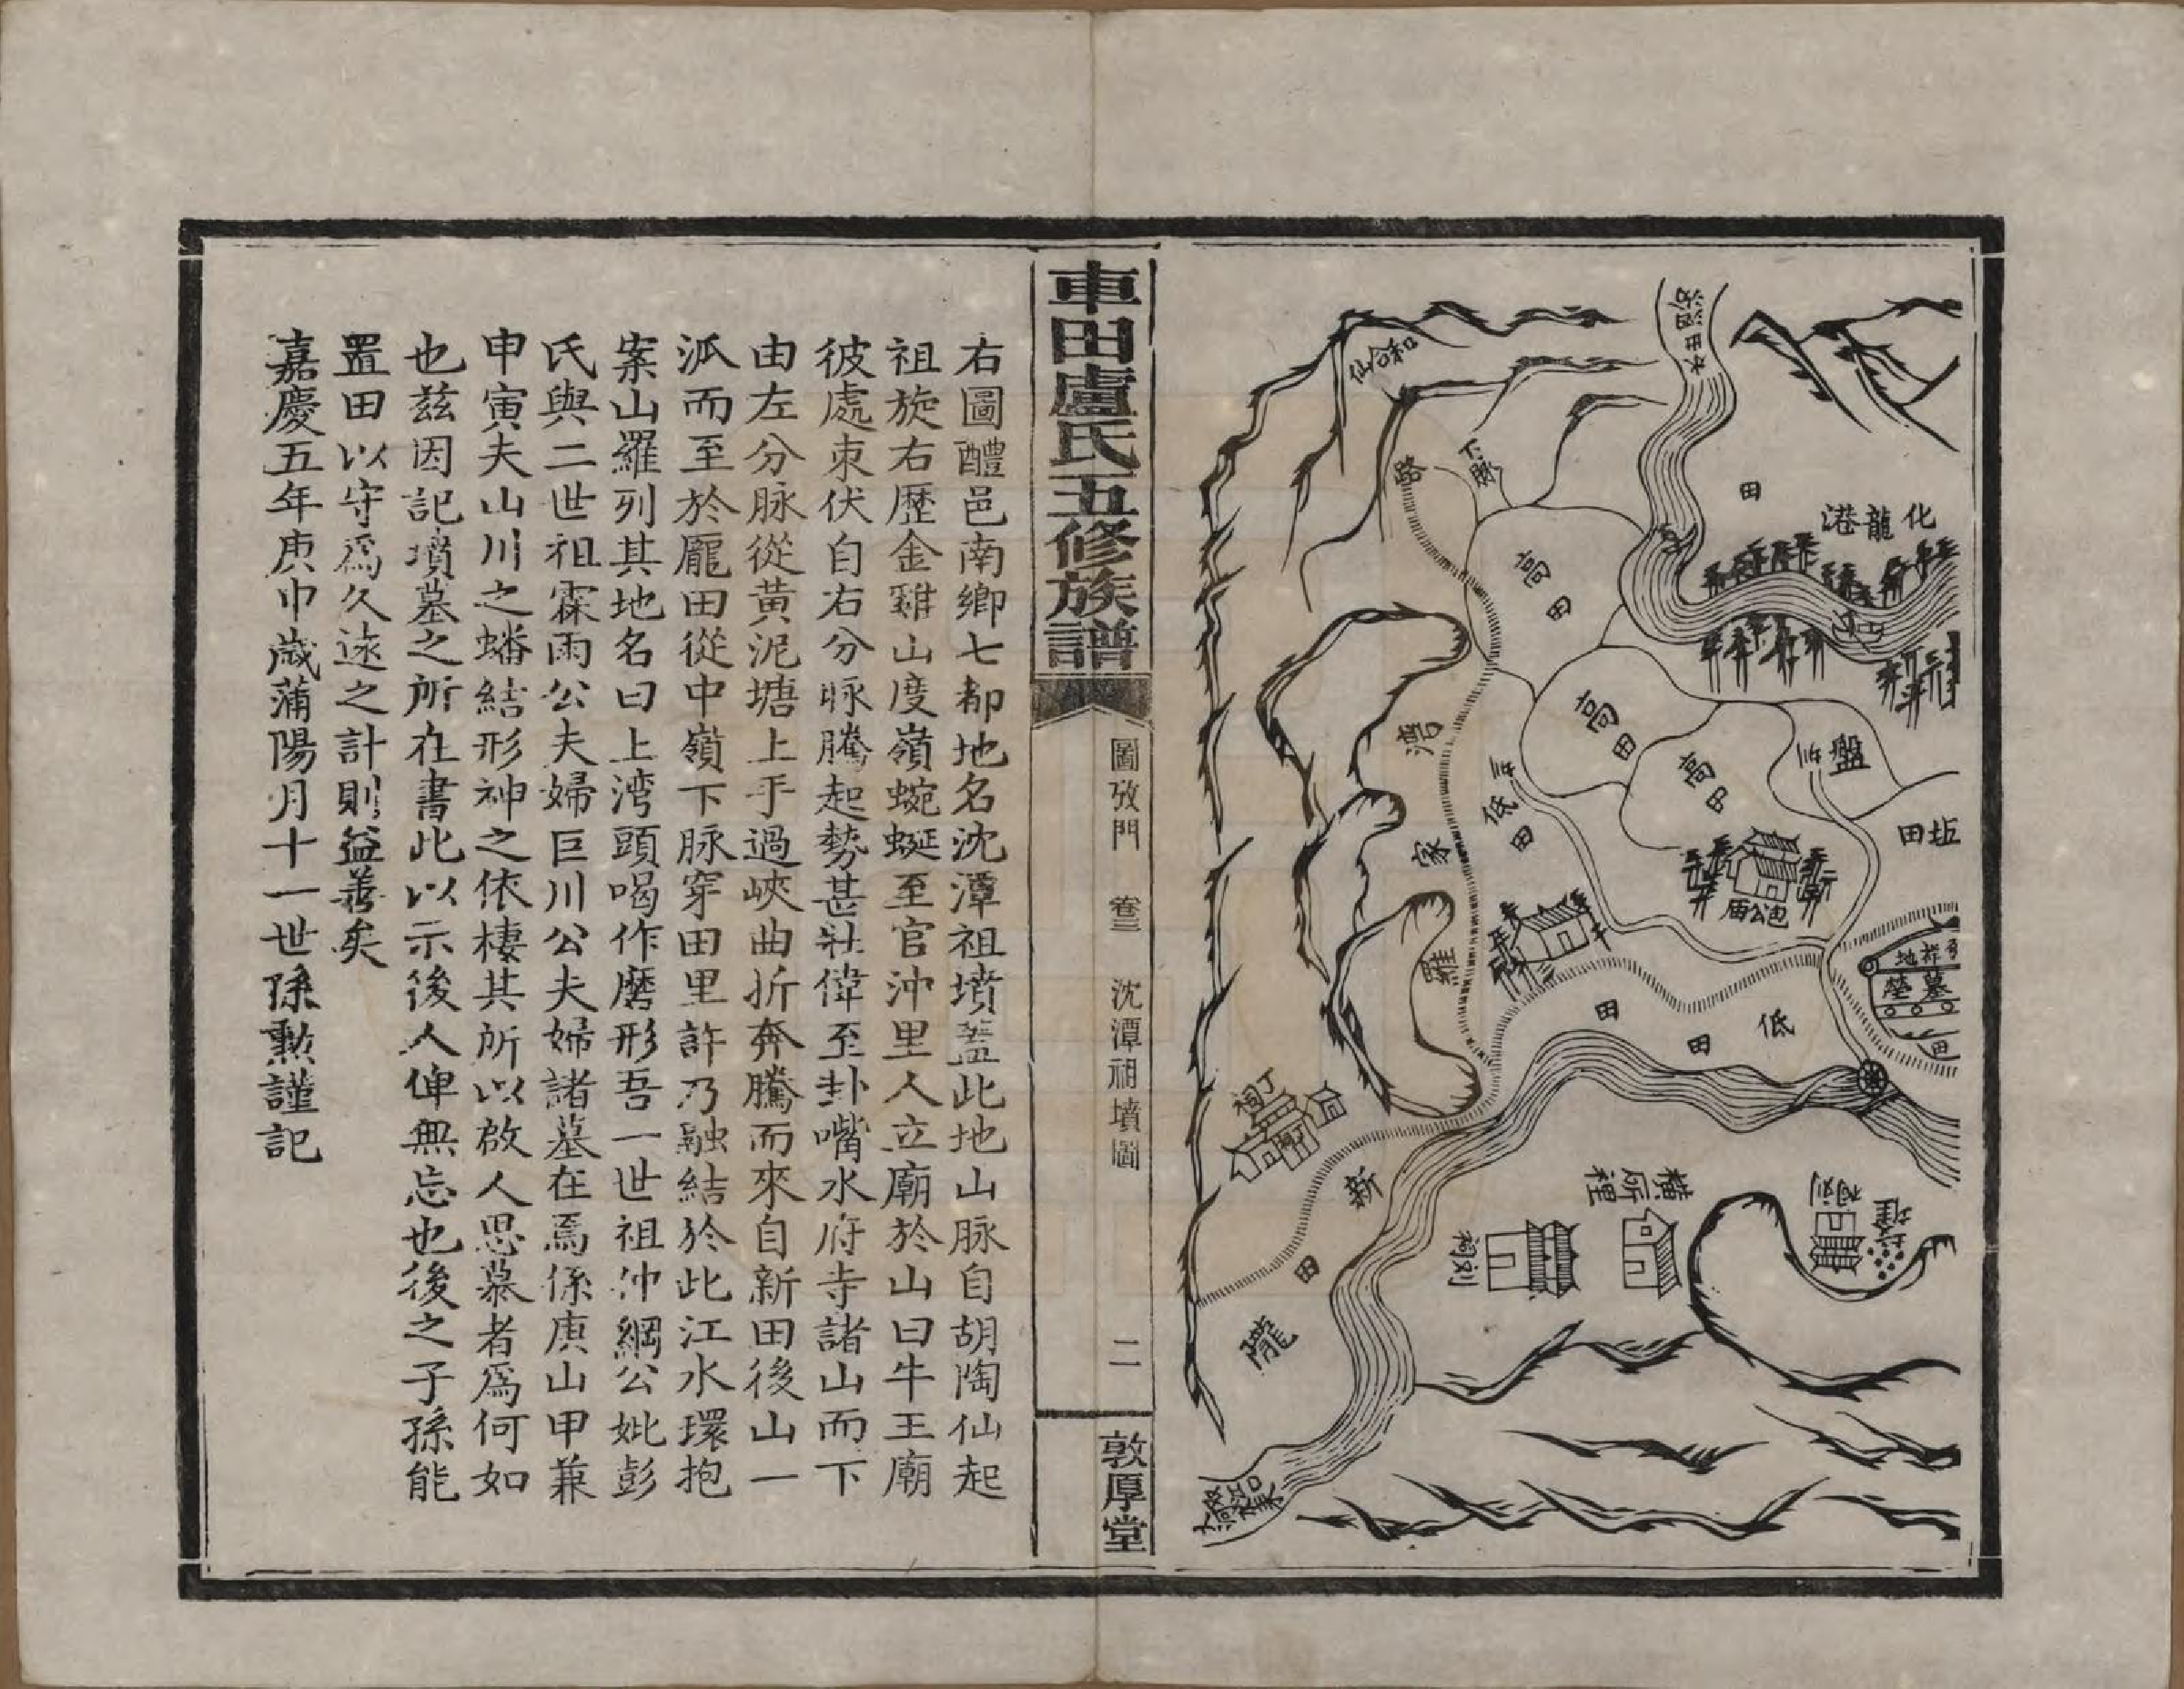 化龍港
田
和合仙
下脉
路
高田
高田
高田
盤
坵田
低田
包公廟
羅家
墓塋
低田
田
田
丁祠
新田
隴
橫㘰裡
劉祠
劉祠
車田盧氏五修族譜
圖攷門　卷三　沈潭祖墳圖
二
敦厚堂
右圖醴邑南鄉七都地名沈潭祖墳蓋此地山脉自胡陶仙起
祖旋右歷金雞山度嶺蜿蜒至官沖里人立廟於山曰牛王廟
彼處束伏自右分脉騰起勢甚壯偉至卦嘴水府寺諸山而下
由左分脉從黃泥塘上手過峽曲折奔騰而來自新田後山一
派而至於龎田從中嶺下脉穿田里許乃融結於此江水環抱
案山羅列其地名曰上湾頭喝作磨形吾一世祖仲綱公妣彭
氏與二世祖霖雨公夫婦巨川公夫婦諸墓在焉係庚山甲兼
申寅夫山川之蟠結形神之依棲其所以啟人思慕者爲何如
也兹因記墳墓之所在書此以示後人俾無忘也後之子孫能
置田以守爲久遠之計則益善矣
嘉慶五年庚申歲蒲陽月十一世孫勲謹記